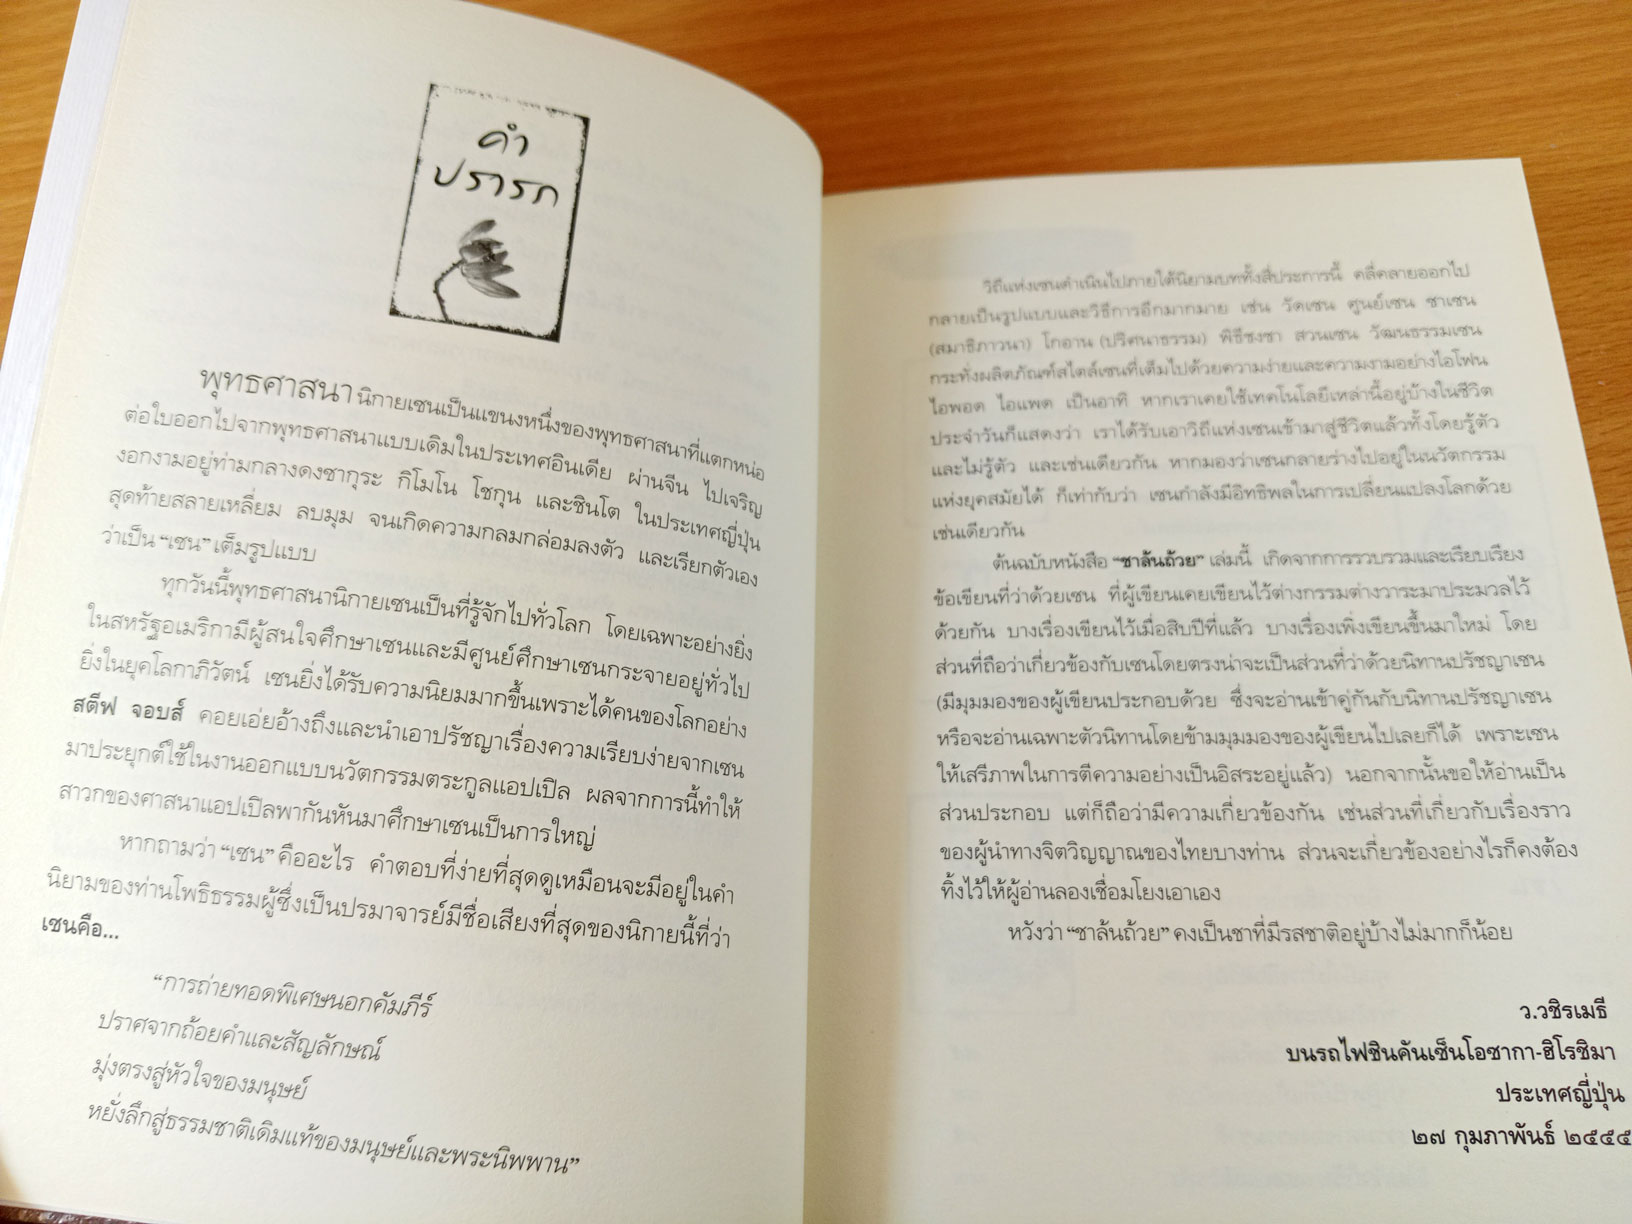 คำ
ปรารภ
พุทธศาสนานิกายเซนเป็นแขนงหนึ่งของพุทธศาสนาที่แตกหน่อ
ต่อใบออกไปจากพุทธศาสนาแบบเดิมในประเทศอินเดีย ผ่านจีน ไปเจริญ
งอกงามอยู่ท่ามกลางดงซากุระ กิโมโน โชกุน และชินโต ในประเทศญี่ปุ่น
สุดท้ายสลายเหลี่ยม ลบมุม จนเกิดความกลมกล่อมลงตัว และเรียกตัวเอง
ว่าเป็น “เซน” เต็มรูปแบบ
ทุกวันนี้พุทธศาสนานิกายเซนเป็นที่รู้จักไปทั่วโลก โดยเฉพาะอย่างยิ่ง
ในสหรัฐอเมริกามีผู้สนใจศึกษาเซนและมีศูนย์ศึกษาเซนกระจายอยู่ทั่วไป
ยิ่งในยุคโลกาภิวัตน์ เซนยิ่งได้รับความนิยมมากขึ้นเพราะได้คนของโลกอย่าง
สตีฟ จอบส์ คอยเอ่ยอ้างถึงและนำเอาปรัชญาเรื่องความเรียบง่ายจากเซน
มาประยุกต์ใช้ในงานออกแบบนวัตกรรมตระกูลแอปเปิล ผลจากการนี้ทำให้
สาวกของศาสนาแอปเปิลพากันหันมาศึกษาเซนเป็นการใหญ่
หากถามว่า “เซน” คืออะไร คำตอบที่ง่ายที่สุดดูเหมือนจะมีอยู่ในคำ
นิยามของท่านโพธิธรรมผู้ซึ่งเป็นปรมาจารย์มีชื่อเสียงที่สุดของนิกายนี้ที่ว่า
เซนคือ...
“การถ่ายทอดพิเศษนอกคัมภีร์
ปราศจากถ้อยคำและสัญลักษณ์
มุ่งตรงสู่หัวใจของมนุษย์
หยั่งลึกสู่ธรรมชาติเดิมแท้ของมนุษย์และพระนิพพาน”
วิถีแห่งเซนดำเนินไปภายใต้นิยามบททั้งสี่ประการนี้ คลี่คลายออกไป
กลายเป็นรูปแบบและวิธีการอีกมากมาย เช่น วัดเซน ศูนย์เซน ซาเซน
(สมาธิภาวนา) โกอาน (ปริศนาธรรม) พิธีชงชา สวนเซน วัฒนธรรมเซน
กระทั่งผลิตภัณฑ์สไตล์เซนที่เต็มไปด้วยความง่ายและความงามอย่างไอโฟน
ไอพอด ไอแพด เป็นอาทิ หากเราเคยใช้เทคโนโลยีเหล่านี้อยู่บ้างในชีวิต
ประจำวันก็แสดงว่า เราได้รับเอาวิถีแห่งเซนเข้ามาสู่ชีวิตแล้วทั้งโดยรู้ตัว
และไม่รู้ตัว และเช่นเดียวกัน หากมองว่าเซนกลายร่างไปอยู่ในนวัตกรรม
แห่งยุคสมัยได้ ก็เท่ากับว่า เซนกำลังมีอิทธิพลในการเปลี่ยนแปลงโลกด้วย
เช่นเดียวกัน
ต้นฉบับหนังสือ “ชาล้นถ้วย” เล่มนี้ เกิดจากการรวบรวมและเรียบเรียง
ข้อเขียนที่ว่าด้วยเซน ที่ผู้เขียนเคยเขียนไว้ต่างกรรมต่างวาระมาประมวลไว้
ด้วยกัน บางเรื่องเขียนไว้เมื่อสิบปีที่แล้ว บางเรื่องเพิ่งเขียนขึ้นมาใหม่ โดย
ส่วนที่ถือว่าเกี่ยวข้องกับเซนโดยตรงน่าจะเป็นส่วนที่ว่าด้วยนิทานปรัชญาเซน
(มีมุมมองของผู้เขียนประกอบด้วย ซึ่งจะอ่านเข้าคู่กันกับนิทานปรัชญาเซน
หรือจะอ่านเฉพาะตัวนิทานโดยข้ามมุมมองของผู้เขียนไปเลยก็ได้ เพราะเซน
ให้เสรีภาพในการตีความอย่างเป็นอิสระอยู่แล้ว) นอกจากนั้นขอให้อ่านเป็น
ส่วนประกอบ แต่ก็ถือว่ามีความเกี่ยวข้องกัน เช่นส่วนที่เกี่ยวกับเรื่องราว
ของผู้นำทางจิตวิญญาณของไทยบางท่าน ส่วนจะเกี่ยวข้องอย่างไรก็คงต้อง
ทิ้งไว้ให้ผู้อ่านลองเชื่อมโยงเอาเอง
หวังว่า “ชาล้นถ้วย” คงเป็นชาที่มีรสชาติอยู่บ้างไม่มากก็น้อย
ว.วชิรเมธี
บนรถไฟชินคันเซ็นโอซากา-ฮิโรชิมา
ประเทศญี่ปุ่น
๒๗ กุมภาพันธ์ ๒๕๕๕